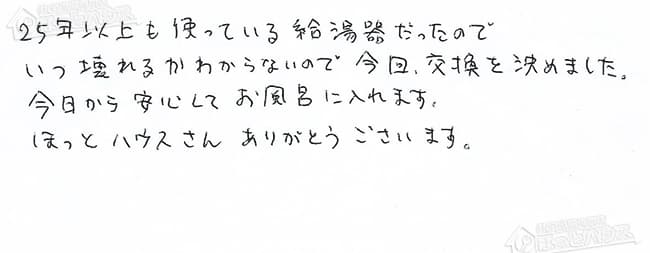 25年以上も使っている給湯器だったので
いつ壊れるかわからないので今回、交換を決めました。
今日から安心してお風呂に入れます。
ほっとハウスさんありがとうございます。